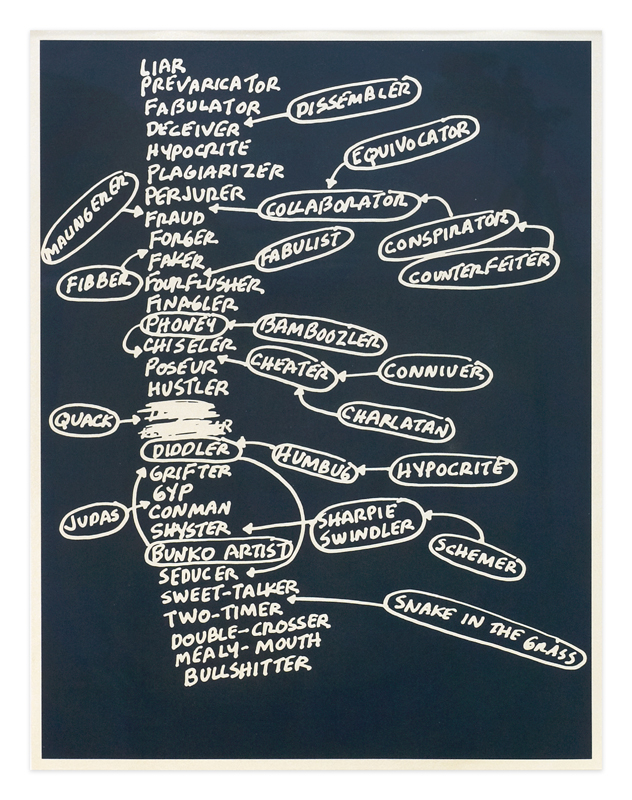 LIAR
PREVARICATOR
FABULATOR
DISSEMBLER
DECEIVER
EQUIVOCATOR
HYPOCRITE
PLAGIARIZER
MALINGERER
PERJURER
COLLABORATOR
FRAUD
CONSPIRATOR
FORGER
FABULIST
COUNTERFEITER
FAKER
FIBBER
FOURFLUSHER
FINAGLER
PHONEY
BAMBOOZLER
CHISELER
POSEUR
CHEATER
CONNIVER
HUSTLER
QUACK
CHARLATAN
DIDDLER
HUMBUG
HYPOCRITE
GRIFTER
GYP
CONMAN
JUDAS
SHYSTER
SHARPIE
SWINDLER
BUNKO ARTIST
SCHEMER
SEDUCER
SWEET-TALKER
TWO-TIMER
SNAKE IN THE GRASS
DOUBLE-CROSSER
MEALY-MOUTH
BULLSHITTER